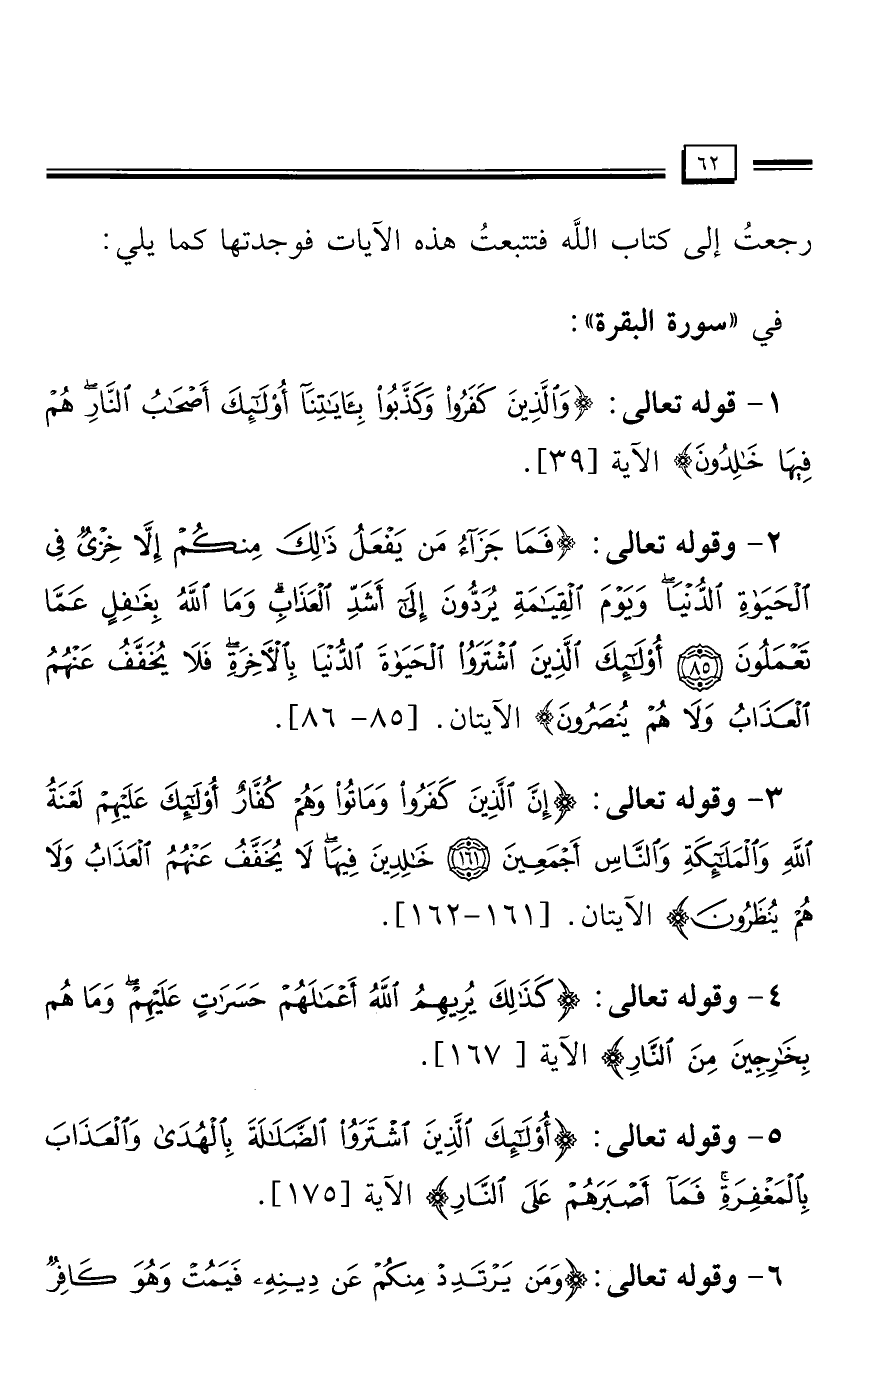 ٦٢
رجعتُ إلى كتاب اللَّه فتتبعتُ هذه الآيات فوجدتها كما يلي:
في «سورة البقرة»:
١- قوله تعالى: ﴿وَٱلَّذِينَ كَفَرُوا۟ وَكَذَّبُوا۟ بِـَٔايَـٰتِنَآ أُو۟لَـٰٓئِكَ أَصْحَـٰبُ ٱلنَّارِ ۖ هُمْ
فِيهَا خَـٰلِدُونَ﴾ الآية [٣٩].
٢- وقوله تعالى: ﴿فَمَا جَزَآءُ مَن يَفْعَلُ ذَٰلِكَ مِنكُمْ إِلَّا خِزْىٌ فِى
ٱلْحَيَوٰةِ ٱلدُّنْيَا ۖ وَيَوْمَ ٱلْقِيَـٰمَةِ يُرَدُّونَ إِلَىٰٓ أَشَدِّ ٱلْعَذَابِ ۗ وَمَا ٱللَّهُ بِغَـٰفِلٍ عَمَّا
تَعْمَلُونَ ٨٥ أُو۟لَـٰٓئِكَ ٱلَّذِينَ ٱشْتَرَوُا۟ ٱلْحَيَوٰةَ ٱلدُّنْيَا بِٱلْـَٔاخِرَةِ ۖ فَلَا يُخَفَّفُ عَنْهُمُ
ٱلْعَذَابُ وَلَا هُمْ يُنصَرُونَ﴾ الآيتان. [٨٥- ٨٦].
٣- وقوله تعالى: ﴿إِنَّ ٱلَّذِينَ كَفَرُوا۟ وَمَاتُوا۟ وَهُمْ كُفَّارٌ أُو۟لَـٰٓئِكَ عَلَيْهِمْ لَعْنَةُ
ٱللَّهِ وَٱلْمَلَـٰٓئِكَةِ وَٱلنَّاسِ أَجْمَعِينَ ١٦١ خَـٰلِدِينَ فِيهَا ۖ لَا يُخَفَّفُ عَنْهُمُ ٱلْعَذَابُ وَلَا
هُمْ يُنظَرُونَ﴾ الآيتان. [١٦١-١٦٢].
٤- وقوله تعالى: ﴿كَذَٰلِكَ يُرِيهِمُ ٱللَّهُ أَعْمَـٰلَهُمْ حَسَرَٰتٍ عَلَيْهِمْ ۖ وَمَا هُم
بِخَـٰرِجِينَ مِنَ ٱلنَّارِ﴾ الآية [ ١٦٧].
٥- وقوله تعالى: ﴿أُو۟لَـٰٓئِكَ ٱلَّذِينَ ٱشْتَرَوُا۟ ٱلضَّلَـٰلَةَ بِٱلْهُدَىٰ وَٱلْعَذَابَ
بِٱلْمَغْفِرَةِ ۚ فَمَآ أَصْبَرَهُمْ عَلَى ٱلنَّارِ﴾ الآية [١٧٥].
٦- وقوله تعالى: ﴿وَمَن يَرْتَدِدْ مِنكُمْ عَن دِينِهِۦ فَيَمُتْ وَهُوَ كَافِرٌ